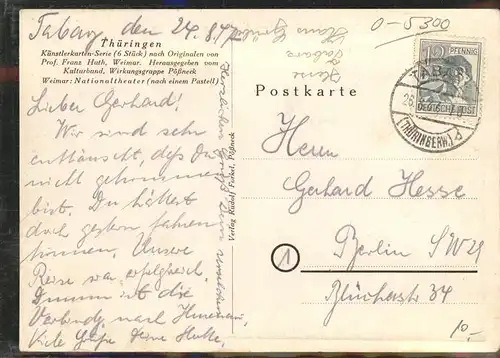 Tabarz, den 24.8.47
Thüringen
Künstlerkarten-Serie (6 Stück) nach Originalen von
Prof. Franz Huth, Weimar. Herausgegeben vom
Kulturbund, Wirkungsgruppe Pößneck
Weimar: Nationaltheater (nach einem Pastell)
Lieber Gerhard!
Wir sind sehr
enttäuscht, daß Du
nicht gekommen
bist. Du hättest
doch gestern fahren
können. Unsere
Reise war erfolgreich.
Dumm ist die
nach
Viele Grüße Deine
Herzlichen Gruß
Verlag Rudolf Forkel, Pößneck
Hesse
Tabarz
Hans
0-5300
Postkarte
12 PFENNIG
DEUTSCHE POST
TABARZ
26.
(THÜRINGERW.)
Herrn
Gerhard Hesse
1
Berlin SW 29
Blücherstr 34
10,-